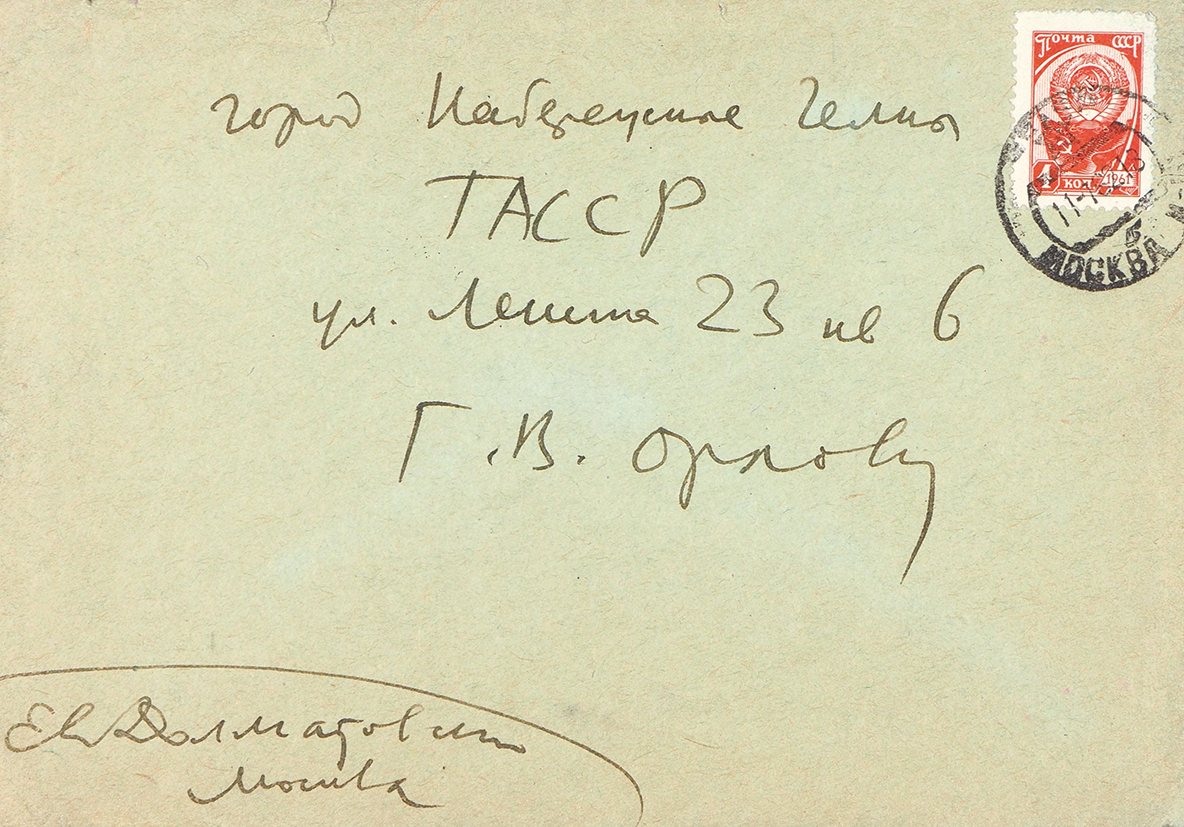 Почта СССР
4 коп 1961
МОСКВА
город Набережные Челны
ТАССР
ул. Ленина 23 кв 6
Г.В. Орлову
Евг Долматовский
Москва